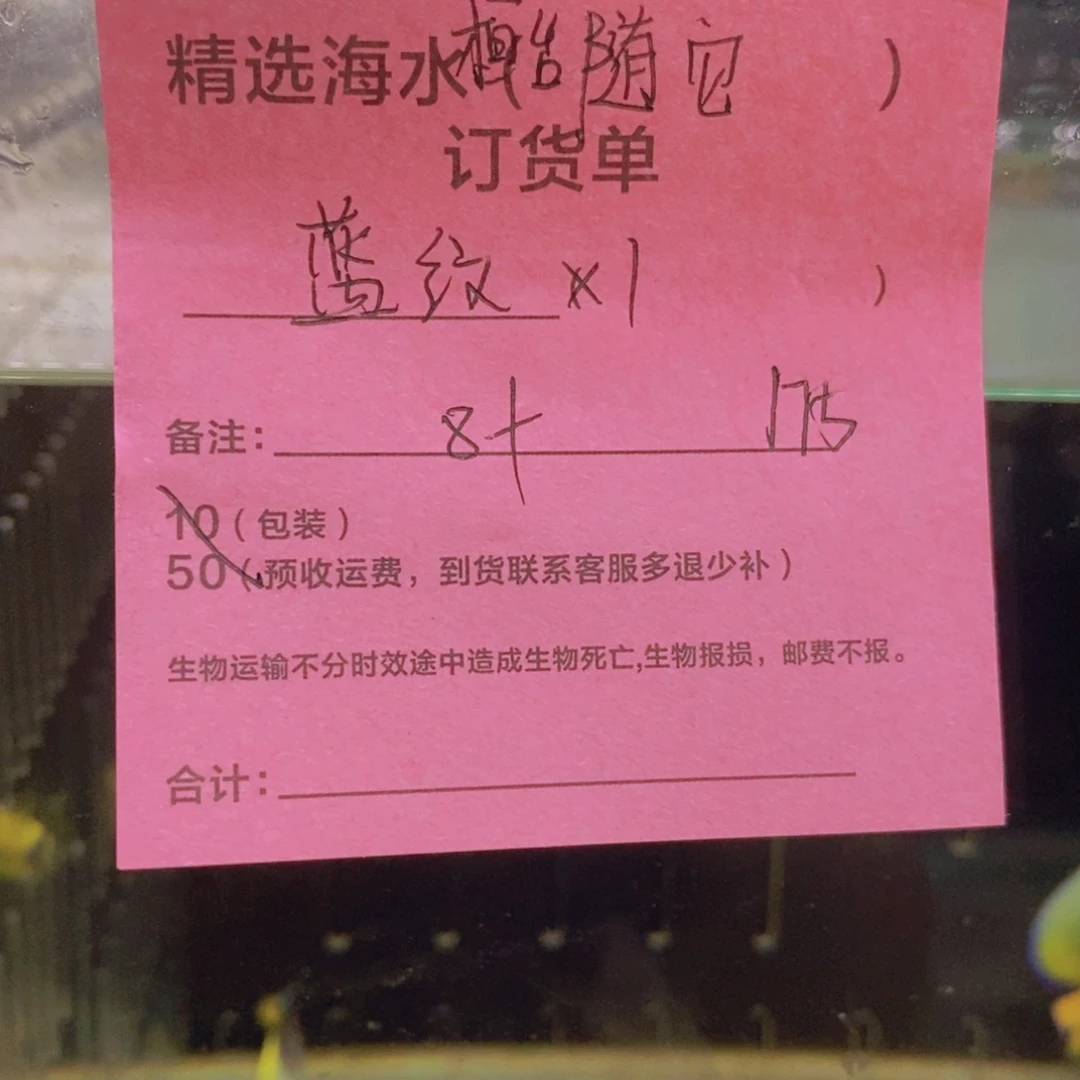 精选海水 随它 )
订货单
蓝纹 ×1 )
备注: 8十
10(包装)
50(预收运费，到货联系客服多退少补)
生物运输不分时效途中造成生物死亡,生物报损，邮费不报。
合计: